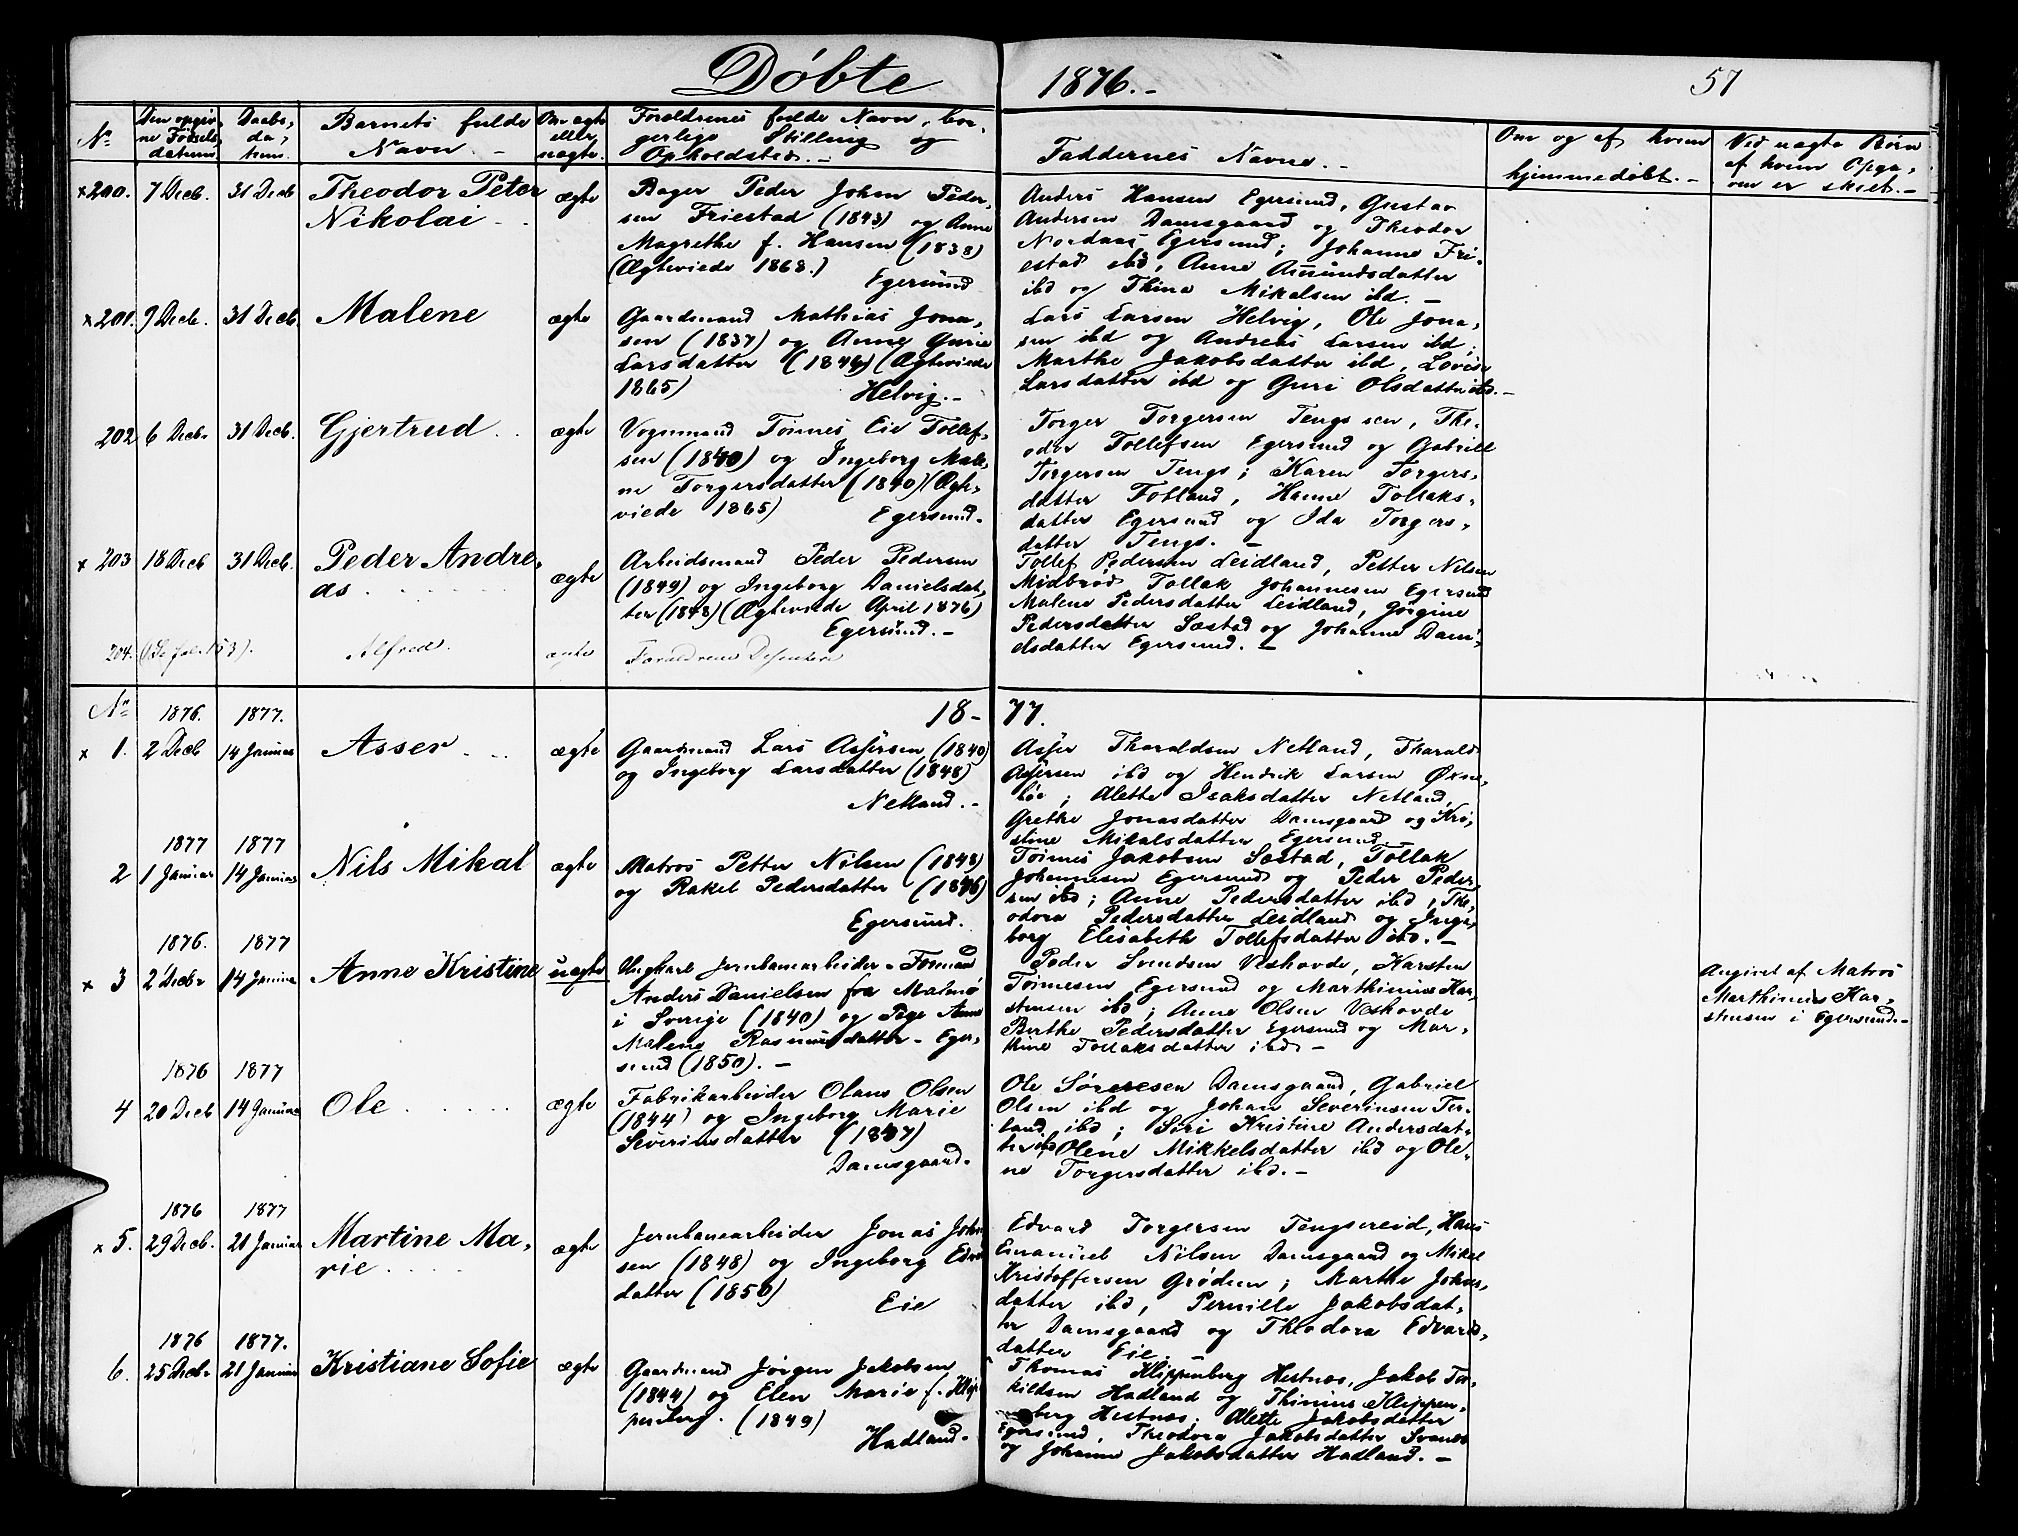 Döbte 1876.- 57
No
Den opgiv,
ne Födsels
datum
Daabs,
da,
tum.
Barnets fulde
Navn. -
Om ægte
eller
uægte.
Foraldrenes fulde Navn, bor,
gerlige Stilling og
Opholdsted. -
Faddernes Navne. -
Om og af hvem
hjemmedöbt. -
Ved uægte Börn
af hvem Opga,
ven er skeet. -
x 200. 7 Decb. 31 Decb Theodor Peter
Nikolai -
ægte
Bager Peder Johan Peder,
sen Friestad (1843) og Anne
Magrethe f. Hansen (1838)
(Ægteviede 1868.)
Egersund
Anders Hansen Egersund, Gustav
Andersen Damsgaard og Theodor
Nordaas Egersund; Johanne Fri-
estad ibd, Anne Amundsdatter
ibd og Thina Mikalsen ibd. -
x 201. 9 Decb. 31 Decb. Malene ægte
Gaardmand Mathias Jona,
sen (1837) og Anne Gurie
Larsdatter (1846) (Ægteviede
1865)
Helvig. -
Lars Larsen Helvig, Ole Jona,
sen ibd og Andreas Larsen ibd;
Marthe Jakobsdatter ibd, Lovise
Larsdatter ibd og Guri Olsdatter ibd. -
202 6 Decbr 31 Decb. Gjertrud . . ægte
Vognmand Tönnes Eie Tollef,
sen (1840) og Ingeborg Male,
ne Torgersdatter (1840) (Ægte,
viede 1865)
Egersund.
Torger Torgersen Tengs sen, The-
odor Tollefsen Egersund og Gabriel
Torgersen Tengs; Karen Torgers,
datter Fotland, Hanne Tollaks,
datter Egersund og Ida Torgers,
datter Tengs. -
x 203 18 Decb 31 Decb. Peder Andre,
as . . . . . .
ægte
Arbeidsmand Peder Pedersen
(1849) og Ingeborg Danielsdat,
ter (1848) (Ægteviede April 1876)
Egersund. -
Tollef Pedersen Leidland, Petter Nilsen
Midbröd Tollak Johannesen Egersund
Malene Pedersdatter Leidland, Görgine
Pedersdatter Sæstad og Johanne Dani,
elsdatter Egersund. -
204. (Se fol. 153). Alfred. ægte Forældrene Dissentere
No 1876. 1877. 18- 77.
x 1. 2 Decb 14 Januar Asser . . . ægte
Gaardmand Lars Assersen (1840)
og Ingeborg Larsdatter (1848)
Netland. -
Asser Tharaldsen Netland, Tharald
Assersen ibd og Hendrik Larsen Øxne,
böe; Alette Isaksdatter Netland,
Grethe Jonasdatter Damsgaard og Kri,
stine Mikalsdatter Egersund.
1877 1877
2 1 Januar 14 Januar Nils Mikal ægte
Matros Petter Nilsen (1848)
og Rakel Pedersdatter (1846)
Egersund.
Tönnes Jakobsen Sæstad, Tollak
Johannesen Egersund og Peder Peder
sen ibd; Anne Pedersdatter ibd, The,
odora Pedersdatter Leidland og Inge,
borg Elisabeth Tollefsdatter ibd. -
1876. 1877
x 3 2 Decbr 14 Januar Anne Kristine uægte
Ungkarl Jernbanearbeider-Formand
Anders Danielsen fra Malmö
i Sverige (1840) og Pige Anne
Malene Rasmusdatter - Eger,
sund (1850). -
Peder Svendsen Veshovde, Karsten
Tönnesen Egersund og Marthinius Kar,
stensen ibd; Anne Olsen Veshovde
Berthe Pedersdatter Egersund og Mar-
thine Tollaksdatter ibd -
Angivet af Matros
Marthinius Kar,
stensen i Egersund. -
1876 1877
4 20 Decb 14 Januar Ole . . . . . ægte
Fabrikarbeider Olaus Olsen
(1844) og Ingeborg Marie
Severinsdatter (1847)
Damsgaard.
Ole Sörensen Damsgaard, Gabriel
Olsen ibd og Johan Severinsen Ter,
land ibd; Siri Kristine Andersdat,
ter ibd, Olene Mikkelsdatter ibd og Ole,
ne Torgersdatter ibd. -
1876 1877
x 5. 29 Decb. 21 Januar Martine Ma,
rie . . . .
ægte
Jernbanearbeider Jonas John
sen (1848) og Ingeborg Edvards
datter (1850)
Eie
Edvard Torgersen Tengsereid, Hans
Emanuel Nilsen Damsgaard og Mikal
Kristoffersen Grödem; Marthe Johns,
datter ibd, Pernille Jakobsdat,
ter Damsgaard og Theodora Edvards,
datter Eie. -
1876 1877.
6. 25 Decbr 21 Januar Kristiane Sofie ægte
Gaardmand Jörgen Jakobsen
(1844) og Elen Marie f. Klip
penberg. (1849)
Hadland.
Thomas Klippenberg Hestnæs, Jakob Tor,
kildsen Hadland og Thinius Klippen,
berg Hestnæs; Alette Jakobsdatter
Egersund, Theodora Jakobsdatter Svanæs
og Johanne Jakobsdatter Hadland. -